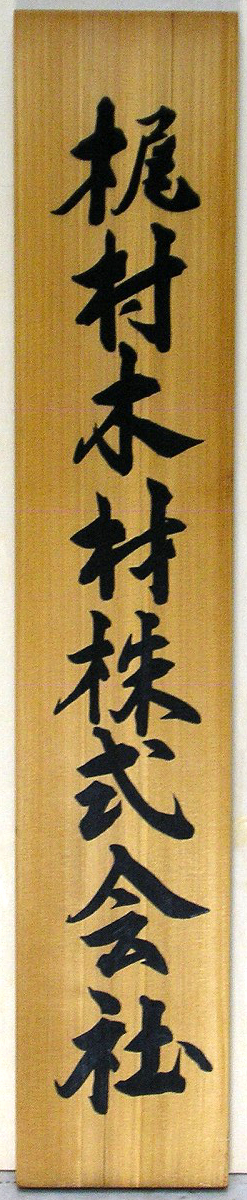 梶村木材株式会社